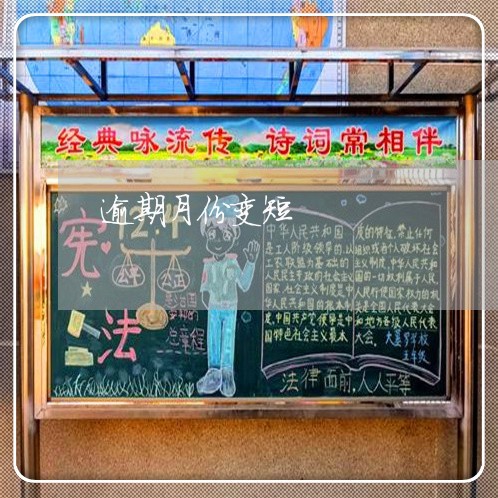 经典咏流传 诗词常相伴
逾期月份变短
12.4
宪
法
公平
公正
国的
总章程
中华人民共和国
是工人阶级领导的,以
工农联盟为基础的
人民民主专政的社会主义
国家.社会主义制度是中
华人民共和国的根本制
度.中国共产党领导是中
国特色社会主义最本
质的特征.禁止任何
组织或者个人破坏社会
主义制度.中华人民共和
国的一切权利属于人民.
人民行使国家权力的机
关是全国人民代表大会
和地方各级人民代表
大会.
五年级
法律面前,人人平等